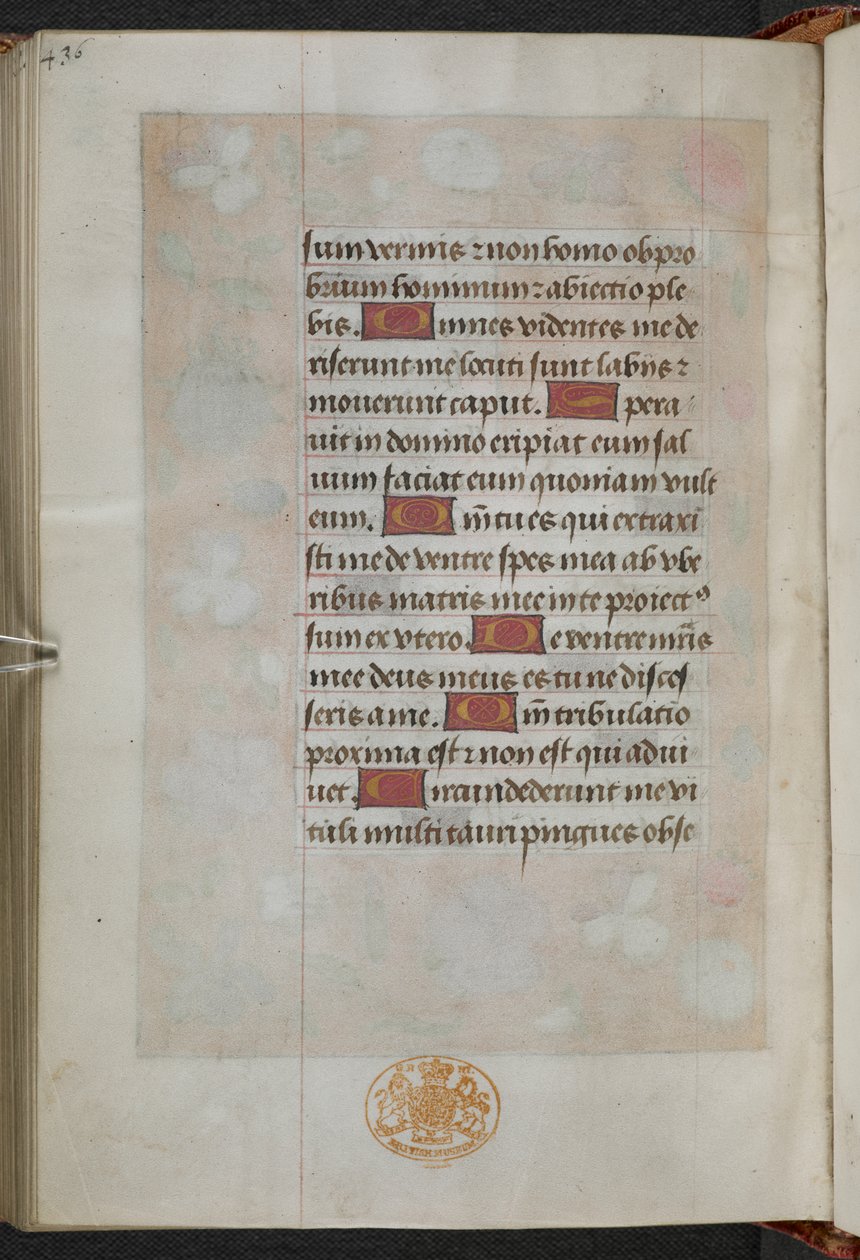 436
sum vermis ⁊ non homo obpro
brium hominum ⁊ abiectio ple
bis. Omnes videntes me de
riserunt me locuti sunt labijs ⁊
mouerunt caput. Spera
uit in domino eripiat eum sal
uum faciat eum quoniam vult
eum. Om̄ tu es qui extraxi
sti me de ventre spes mea ab vbe
ribus matris mee in te proiectꝰ
sum ex vtero. De ventre mr̄is
mee deus meus es tu ne disces
seris a me. Om̄ tribulatio
proxima est ⁊ non est qui adui
uet. Circumdederunt me vi
tuli multi tauri pingues obse
BRITISH MUSEUM